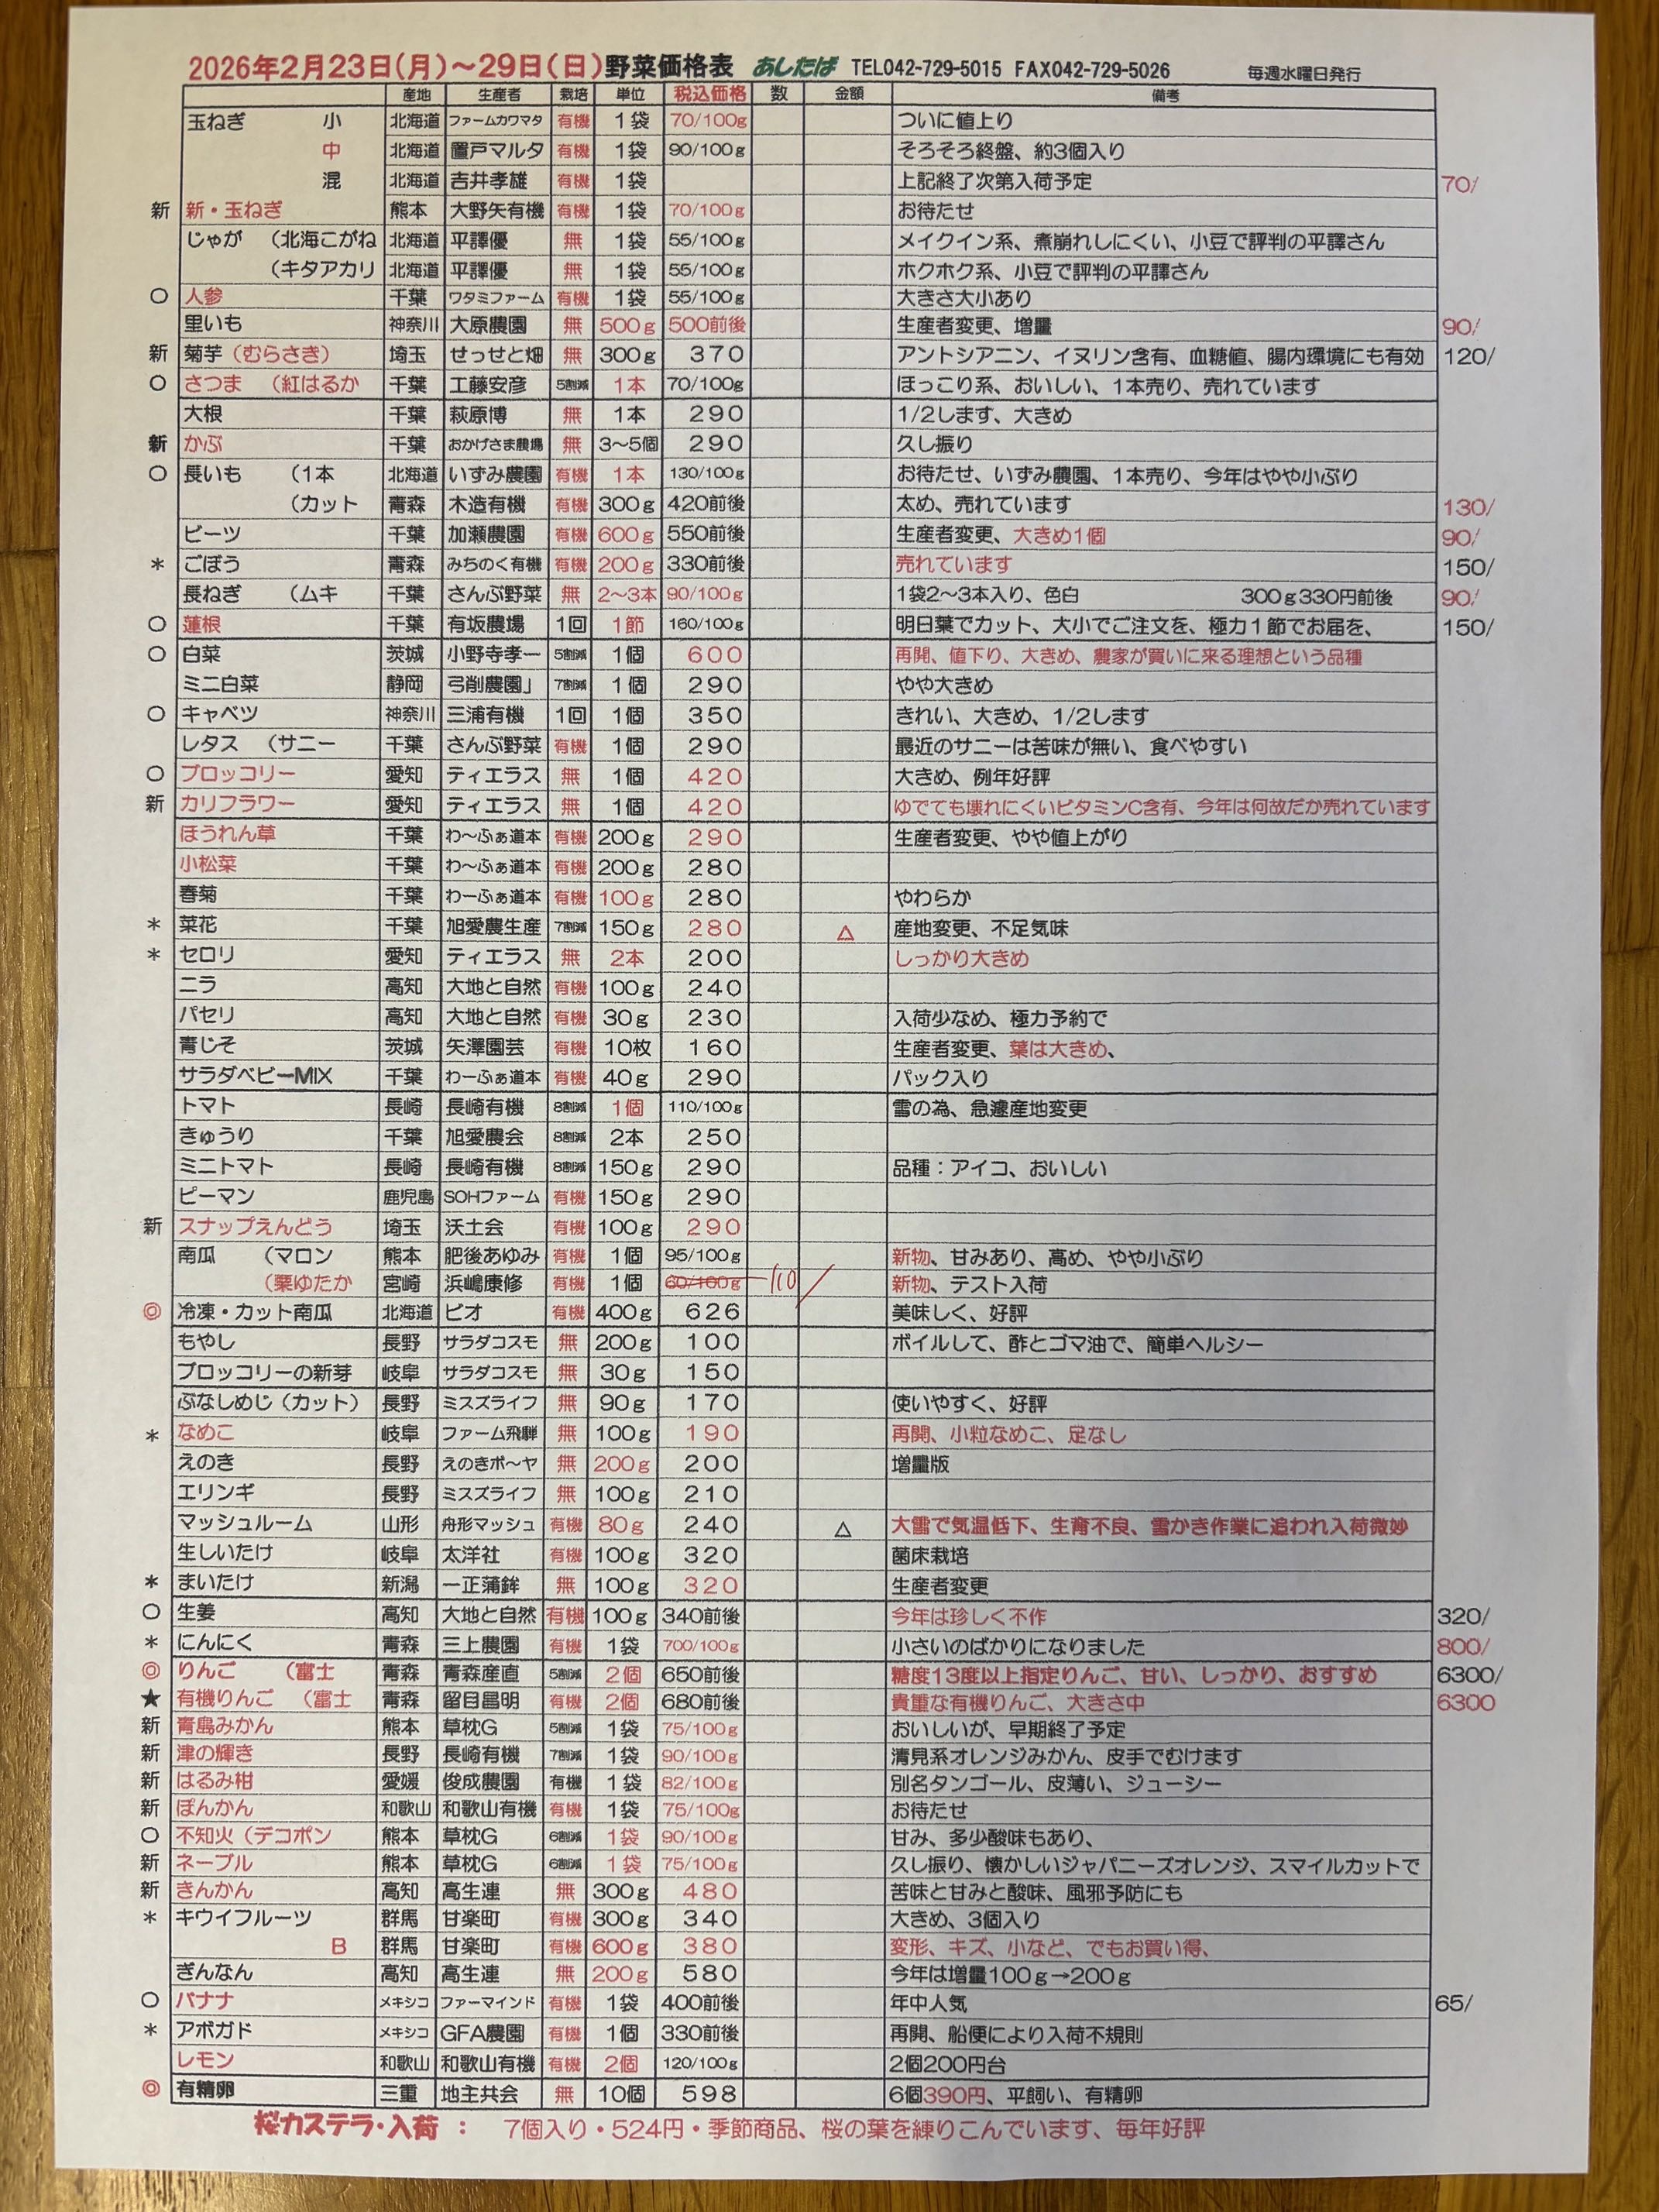 2026年2月23日(月)～29日(日)野菜価格表 あしたば TEL042-729-5015 FAX042-729-5026 毎週水曜日発行
産地 生産者 栽培 単位 税込価格 数 金額 備考
玉ねぎ 小 北海道 ファームカワマタ 有機 1袋 70/100g ついに値上り
中 北海道 置戸マルタ 有機 1袋 90/100g そろそろ終盤、約3個入り
混 北海道 吉井孝雄 有機 1袋 上記終了次第入荷予定 70/
新 新・玉ねぎ 熊本 大野矢有機 有機 1袋 70/100g お待たせ
じゃが （北海こがね 北海道 平譯優 無 1袋 55/100g メイクイン系、煮崩れしにくい、小豆で評判の平譯さん
（キタアカリ 北海道 平譯優 無 1袋 55/100g ホクホク系、小豆で評判の平譯さん
○ 人参 千葉 ワタミファーム 有機 1袋 55/100g 大きさ大小あり
里いも 神奈川 大原農園 無 500g 500前後 生産者変更、増量 90/
新 菊芋（むらさき） 埼玉 せっせと畑 無 300g 370 アントシアニン、イヌリン含有、血糖値、腸内環境にも有効 120/
○ さつま （紅はるか 千葉 工藤安彦 5割減 1本 70/100g ほっこり系、おいしい、1本売り、売れています
大根 千葉 萩原博 無 1本 290 1/2します、大きめ
新 かぶ 千葉 おかげさま農場 無 3～5個 290 久し振り
○ 長いも （1本 北海道 いずみ農園 有機 1本 130/100g お待たせ、いずみ農園、1本売り、今年はやや小ぶり
（カット 青森 木造有機 有機 300g 420前後 太め、売れています 130/
ビーツ 千葉 加瀬農園 有機 600g 550前後 生産者変更、大きめ1個 90/
＊ ごぼう 青森 みちのく有機 有機 200g 330前後 売れています 150/
長ねぎ （ムキ 千葉 さんぶ野菜 無 2～3本 90/100g 1袋2～3本入り、色白 300g330円前後 90/
○ 蓮根 千葉 有坂農場 1回 1節 160/100g 明日葉でカット、大小でご注文を、極力１節でお届を、 150/
○ 白菜 茨城 小野寺孝一 5割減 1個 600 再開、値下り、大きめ、農家が買いに来る理想という品種
ミニ白菜 静岡 弓削農園」 7割減 1個 290 やや大きめ
○ キャベツ 神奈川 三浦有機 1回 1個 350 きれい、大きめ、1/2します
レタス （サニー 千葉 さんぶ野菜 有機 1個 290 最近のサニーは苦味が無い、食べやすい
○ ブロッコリー 愛知 ティエラス 無 1個 420 大きめ、例年好評
新 カリフラワー 愛知 ティエラス 無 1個 420 ゆでても壊れにくいビタミンC含有、今年は何故だか売れています
ほうれん草 千葉 わ～ふぁ道本 有機 200g 290 生産者変更、やや値上がり
小松菜 千葉 わ～ふぁ道本 有機 200g 280
春菊 千葉 わーふぁ道本 有機 100g 280 やわらか
＊ 菜花 千葉 旭愛農生産 7割減 150g 280 △ 産地変更、不足気味
＊ セロリ 愛知 ティエラス 無 2本 200 しっかり大きめ
ニラ 高知 大地と自然 有機 100g 240
パセリ 高知 大地と自然 有機 30g 230 入荷少なめ、極力予約で
青じそ 茨城 矢澤園芸 有機 10枚 160 生産者変更、葉は大きめ、
サラダベビーMIX 千葉 わーふぁ道本 有機 40g 290 パック入り
トマト 長崎 長崎有機 8割減 1個 110/100g 雪の為、急遽産地変更
きゅうり 千葉 旭愛農会 8割減 2本 250
ミニトマト 長崎 長崎有機 8割減 150g 290 品種：アイコ、おいしい
ピーマン 鹿児島 SOHファーム 有機 150g 290
新 スナップえんどう 埼玉 沃土会 有機 100g 290
南瓜 （マロン 熊本 肥後あゆみ 有機 1個 95/100g 新物、甘みあり、高め、やや小ぶり
（栗ゆたか 宮崎 浜嶋康修 有機 1個 60/100g 110/ 新物、テスト入荷
◎ 冷凍・カット南瓜 北海道 ビオ 有機 400g 626 美味しく、好評
もやし 長野 サラダコスモ 無 200g 100 ボイルして、酢とゴマ油で、簡単ヘルシー
ブロッコリーの新芽 岐阜 サラダコスモ 無 30g 150
ぶなしめじ（カット） 長野 ミスズライフ 無 90g 170 使いやすく、好評
＊ なめこ 岐阜 ファーム飛騨 無 100g 190 再開、小粒なめこ、足なし
えのき 長野 えのきボ～ヤ 無 200g 200 増量版
エリンギ 長野 ミスズライフ 無 100g 210
マッシュルーム 山形 舟形マッシュ 有機 80g 240 △ 大雪で気温低下、生育不良、雪かき作業に追われ入荷微妙
生しいたけ 岐阜 太洋社 有機 100g 320 菌床栽培
＊ まいたけ 新潟 一正蒲鉾 無 100g 320 生産者変更
○ 生姜 高知 大地と自然 有機 100g 340前後 今年は珍しく不作 320/
＊ にんにく 青森 三上農園 有機 1袋 700/100g 小さいのばかりになりました 800/
◎ りんご （富士 青森 青森産直 5割減 2個 650前後 糖度13度以上指定りんご、甘い、しっかり、おすすめ 6300/
★ 有機りんご （富士 青森 留目昌明 有機 2個 680前後 貴重な有機りんご、大きさ中 6300
新 青島みかん 熊本 草枕G 5割減 1袋 75/100g おいしいが、早期終了予定
新 津の輝き 長野 長崎有機 7割減 1袋 90/100g 清見系オレンジみかん、皮手でむけます
新 はるみ柑 愛媛 俊成農園 有機 1袋 82/100g 別名タンゴール、皮薄い、ジューシー
新 ぽんかん 和歌山 和歌山有機 有機 1袋 75/100g お待たせ
○ 不知火（デコポン 熊本 草枕G 6割減 1袋 90/100g 甘み、多少酸味もあり、
新 ネーブル 熊本 草枕G 6割減 1袋 75/100g 久し振り、懐かしいジャパニーズオレンジ、スマイルカットで
新 きんかん 高知 高生連 無 300g 480 苦味と甘みと酸味、風邪予防にも
＊ キウイフルーツ 群馬 甘楽町 有機 300g 340 大きめ、3個入り
B 群馬 甘楽町 有機 600g 380 変形、キズ、小など、でもお買い得、
ぎんなん 高知 高生連 無 200g 580 今年は増量100g→200g
○ バナナ メキシコ ファーマインド 有機 1袋 400前後 年中人気 65/
＊ アボガド メキシコ GFA農園 有機 1個 330前後 再開、船便により入荷不規則
レモン 和歌山 和歌山有機 有機 2個 120/100g 2個200円台
◎ 有精卵 三重 地主共会 無 10個 598 6個390円、平飼い、有精卵
桜カステラ・入荷 ： 7個入り・524円・季節商品、桜の葉を練りこんでいます、毎年好評